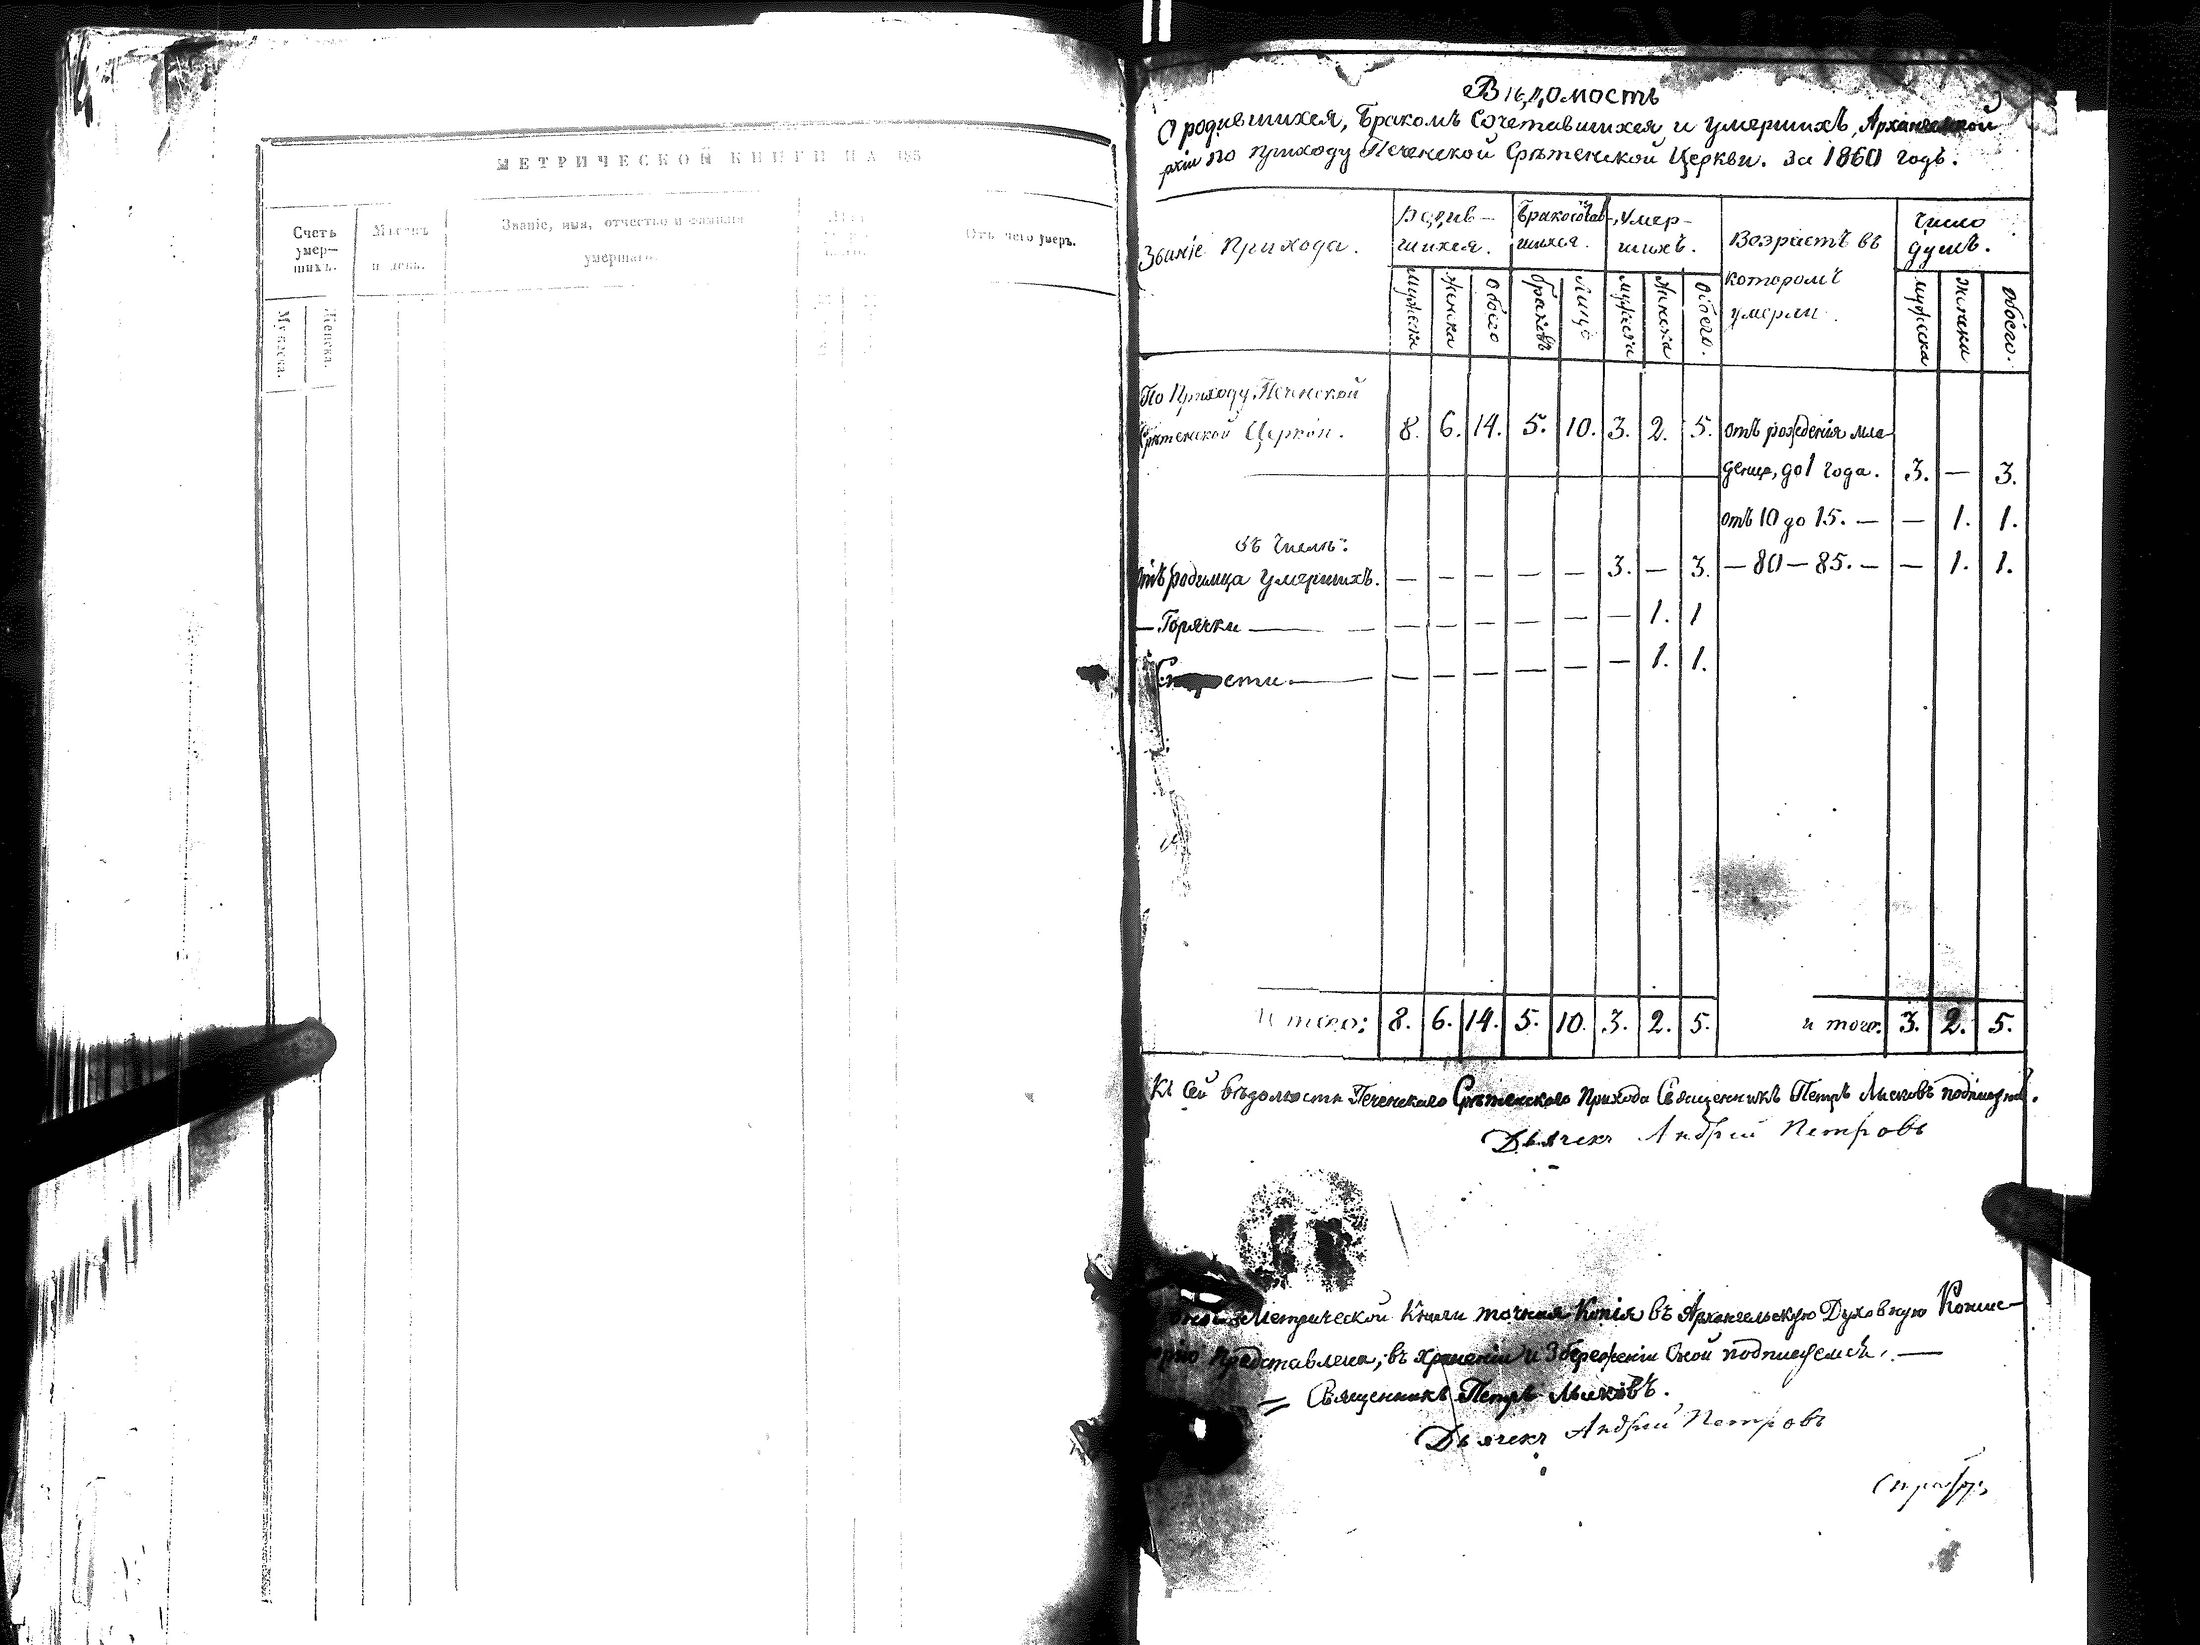 МЕТРИЧЕСКОЙ КНИГИ НА 185
Счетъ умер-
шихъ.
Мѣсяцъ
и день.
Званіе, имя, отчество и фамилія
умершаго.
Отъ чего умеръ.
Мужеска.
Женска.
Вѣдомость
О родившихся, Бракомъ Сочетавшихся и умершихъ, Архангельской
рхіи по приходу Печенской Срѣтенской Церкви. за 1860 годъ.
Званіе Прихода.
Родив-
шихся.
Бракосочетав-
шихся.
Умер-
шихъ.
Возрастъ въ
которомъ
умерли.
Число
душъ.
Мужеска
Женска
Обоего
браковъ
Лицъ
Мужеска
Женска
Обоего.
мужеска
женска
обоего.
По Приходу Печенской
Срѣтенской Церкви. 8. 6. 14. 5. 10. 3. 2. 5. отъ рожденія мла-
денце, до 1 года. 3. — 3.
отъ 10 до 15. — — 1. 1.
въ Числѣ:
отъ родимца умершихъ. — — — — — 3. — 3. — 80 — 85. — — 1. 1.
— Горячки — — — — — — — — 1. 1
Старости — — — — — — — 1. 1.
И того: 8. 6. 14. 5. 10. 3. 2. 5. и того: 3. 2. 5.
Къ Сей вѣдомости Печенскаго Срѣтенскаго Прихода Священникъ Петръ подписуюсь.
Дьячекъ Андрей Петровъ
Метрической Книги точная Копія въ Архангельскую Духовную Консис-
представлена, въ храненіи и Збереженіи Оной подписуемся. —
= Священникъ Петръ
Дьячекъ Андрей Петровъ